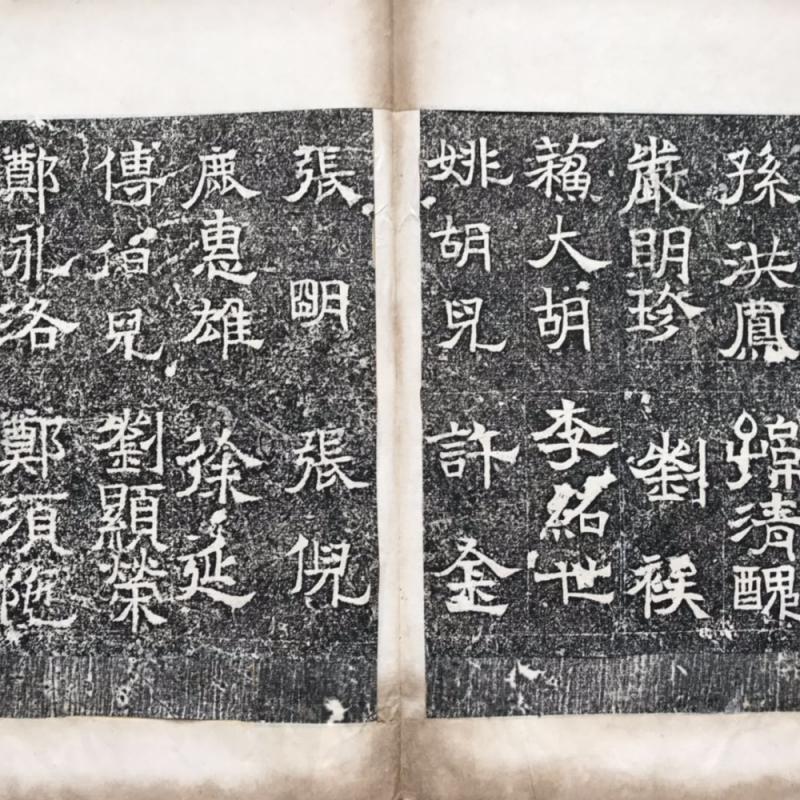 孫洪鳳
孫清醜
嚴明珍
劉俟
蘓大胡
李紹世
姚胡兒
許金
張明
張倪
鹿惠雄
徐延
傅伯兒
劉顯榮
鄭永洛
鄭須陁